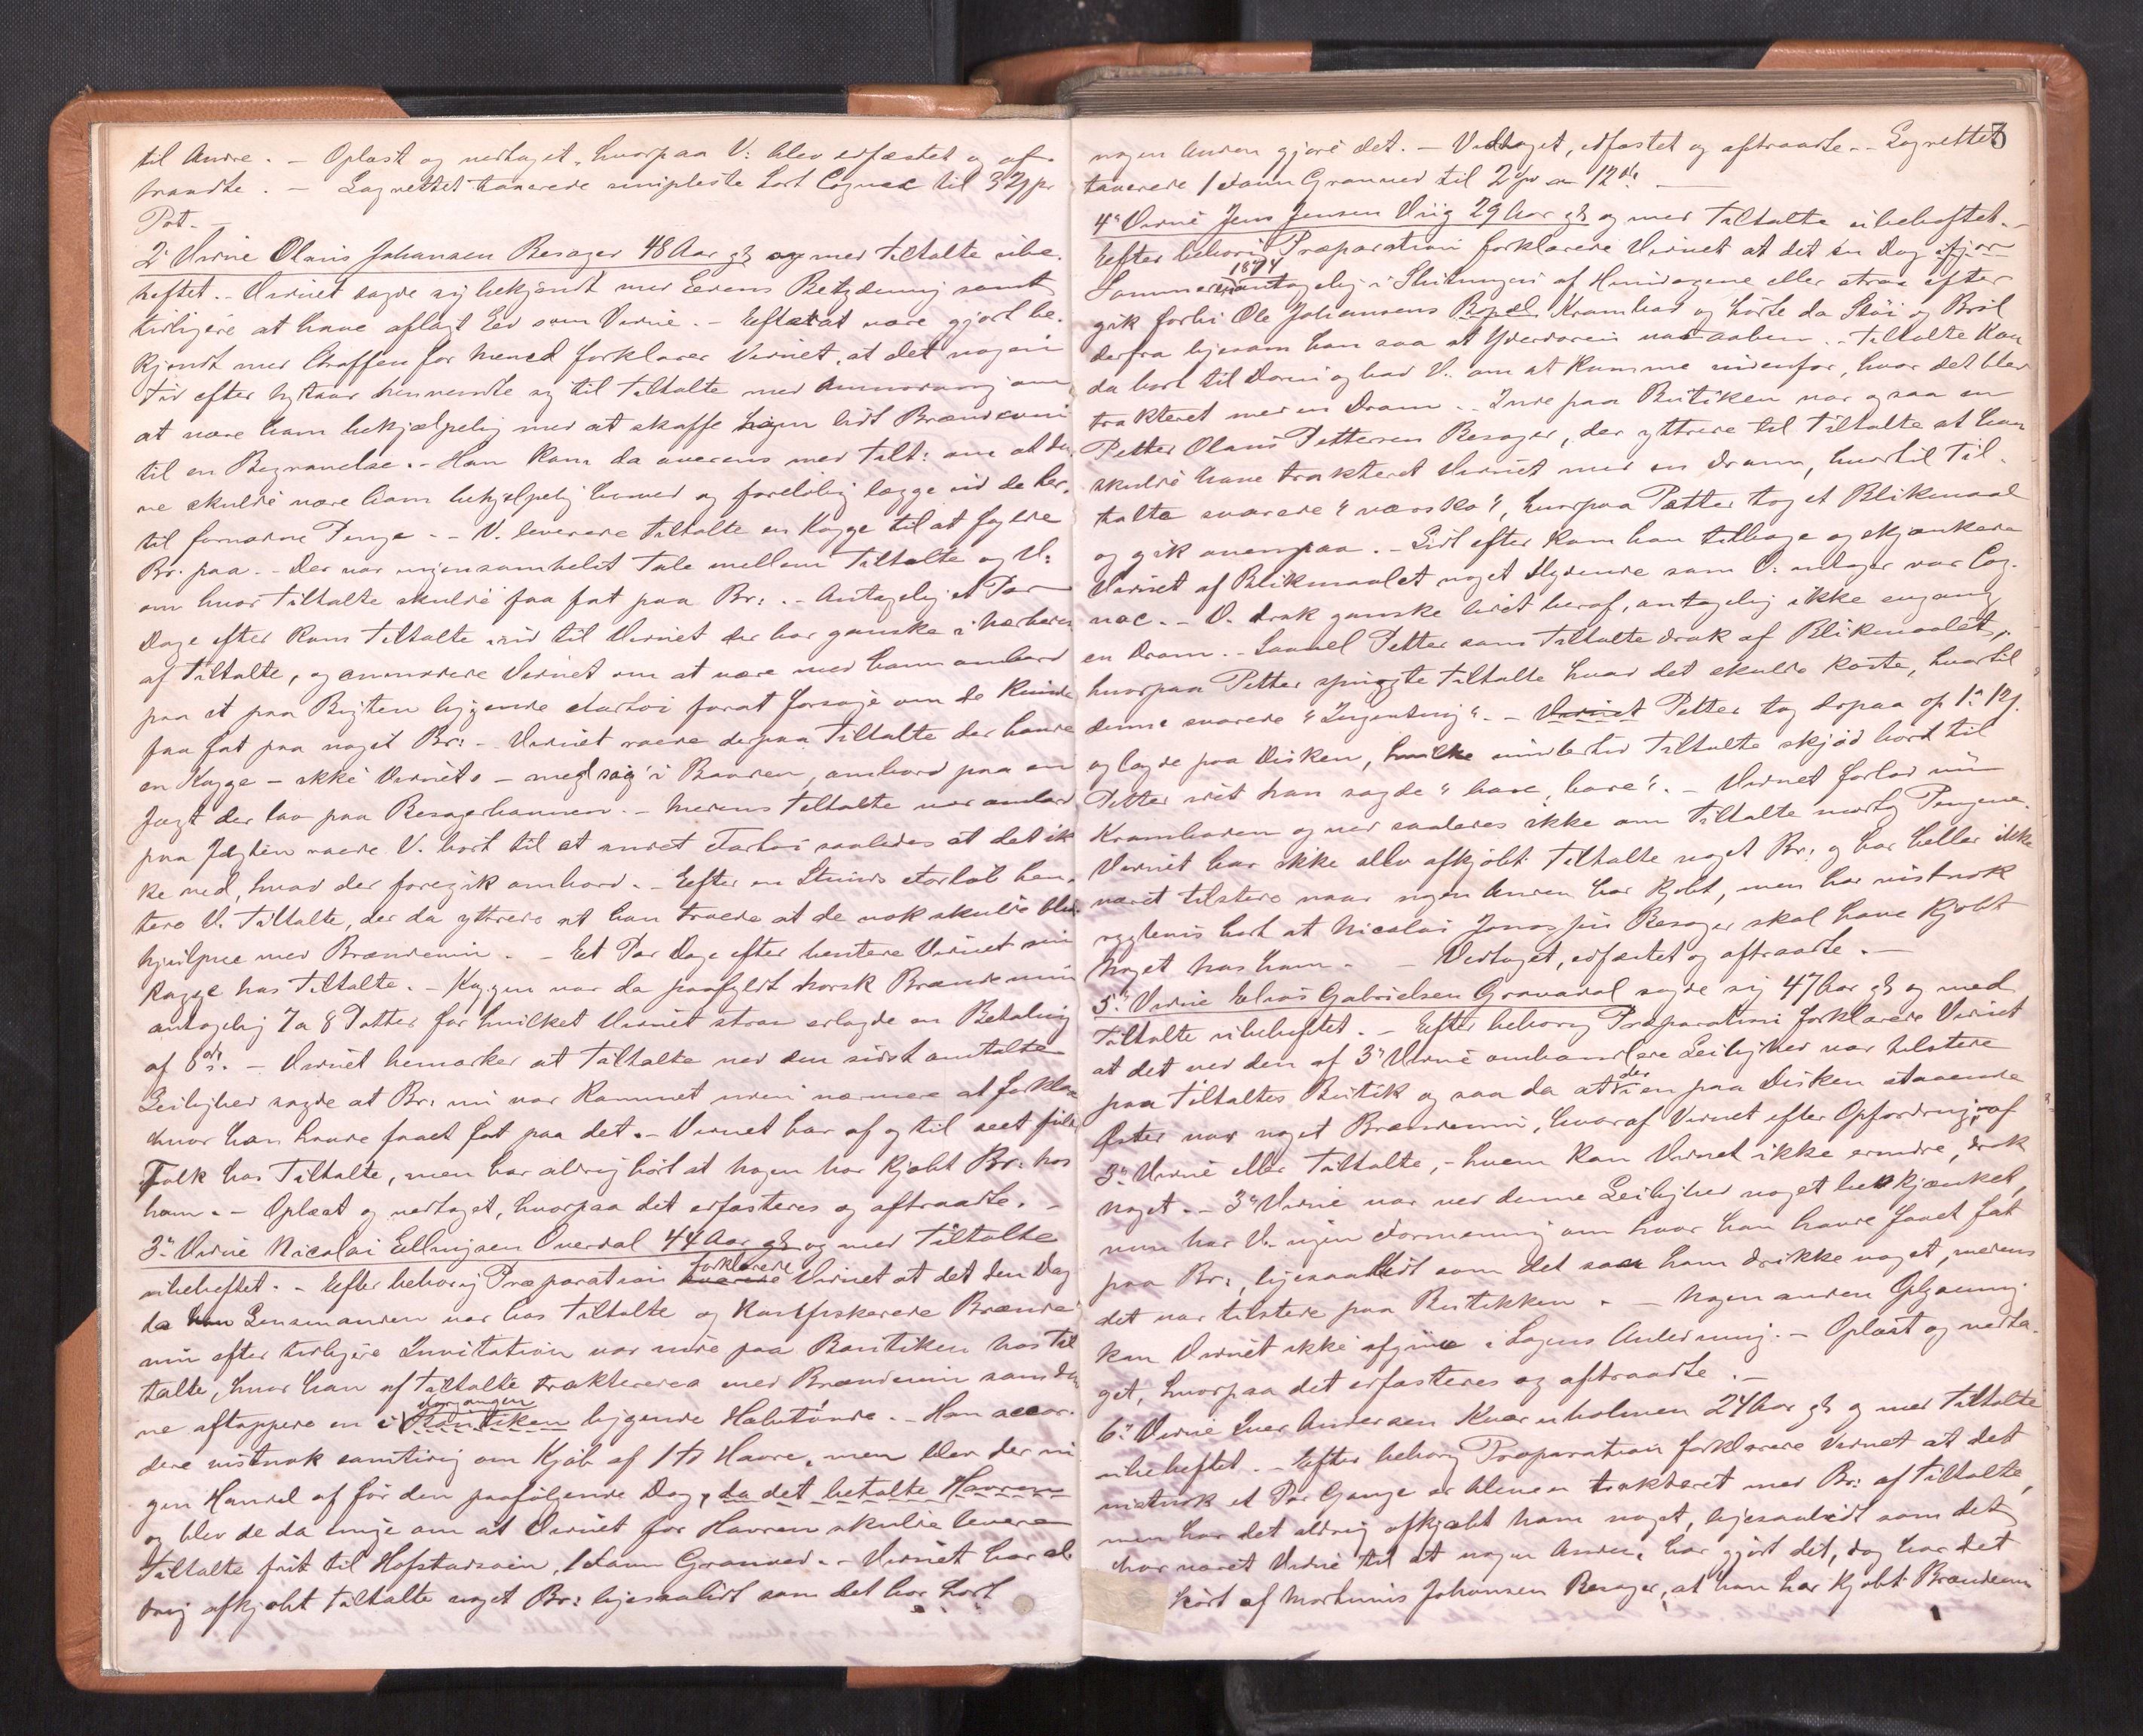 til Andre. – Oplæst og vedtaget, hvorpaa V: blev edfæstet og af-
traadte. – Lagrettet taxerede simpleste Sort Cognac til 32 pr
Pot. –
2' Vidne Olaus Johansen Besager 48 Aar gl og med Tiltalte ube-
heftet. – Vidnet sagde sig bekjendt med Eedens Betydning samt
tidligere at have aflagt Eed som Vidne. – Efterat være gjort be-
kjendt med Straffen for Meened forklarer Vidnet, at det nogen
Tid efter Nytaar henvendte sig til Tiltalte med Anmodning om
at være ham behjælpelig med at skaffe ham lidt Brændeviin
til en Begravelse. – Han kom da overens med Tilt: om at den-
ne skulde være ham behjælpelig hermed og foreløbig lægge ud de her-
til fornødne Penge. – V. leverede Tiltalte en Kagge til at fylde
Br. paa. – Der var ingensomhelst Tale mellem Tiltalte og V:
om hvor Tiltalte skulde faa fat paa Br: – Antagelig et Par
Dage efter kom Tiltalte ned til Vidnet der bor ganske i Nærheden
af Tiltalte, og anmodede Vidnet om at være med ham ombord
paa et paa Bugten liggende Fartøi forat forsøge om de kunde
faa fat paa noget Br: – Vidnet roede derpaa Tiltalte der havde
en Kagge – ikke Vidnets – med sig i Baaden, ombord paa en
Jægt der laa paa Besagerhavnen. – Medens Tiltalte var ombord
paa Jægten roede V. bort til et andet Fartøi saaledes at det ik
ke ved, hvad der foregik ombord. – Efter en Stunds Forløb hen-
tede V. Tiltalte, der da yttrede at han troede at de nok skulde blive
hjulpne med Brændeviin. – Et Par Dage efter hentede Vidnet sin
Kagge hos Tiltalte. – Kaggen var da paafyldt norsk Brændeviin
antagelig 7 a 8 Potter for hvilket Vidnet strax erlagde en Betaling
af 8 ort. – Vidnet bemærker at Tiltalte ved den sidst omtalte
Leilighed sagde at Br: nu var kommet uden nærmere at forklare
hvor han havde faaet fat paa det. – Vidnet har af og til seet fulde
Folk hos Tiltalte, men har aldrig hørt at nogen har kjøbt Br: hos
ham. – Oplæst og vedtaget, hvorpaa det edfæstedes og aftraadte. –
3' Vidne Nicolai Ellingsen Overdal 44 Aar gl og med Tiltalte
ubeheftet. – Efter behørig Præparation forklarede Vidnet at det den Dag
da Lensmanden var hos Tiltalte og konfiskerede Brænde-
viin efter tidligere Invitation var inde paa Boutiken hos Til
talte, hvor han af Tiltalte trakteredes med Brændeviin som den-
ne aftappede en i Forgangen Boutiken liggende Halvtønde. – Han accor-
derede vistnok samtidig om Kjøb af 1 td Havre, men blev der in
gen Handel af før den paafølgende Dag, da det betalte Havren
og blev de da enige om at Vidnet for Havren skulde levere
Tiltalte frit til Hofstadsøien, 1 Favn Granved. – Vidnet har al
drig afkjøbt Tiltalte noget Br: ligesaalidt som det har hørt
3
nogen Anden gjøre det. – Vedtaget, edfæstet og aftraadte. – Lagrettet
taxerede 1 Favn Granved til 2 pr a 12 ort –
4' Vidne Jens Jensen Viig 29 Aar gl og med Tiltalte ubeheftet. –
Efter behørig Præparation forklarede Vidnet at det en Dag ifjor
Sommer 1874 antagelig i Slutningen af Hundagene eller strax efter
gik forbi Ole Johansens Bopæl Krambod og hørte da Støi og Brøl
derfra ligesom han saa at Yderdøren var aaben. – Tiltalte kom
da bort til Døren og bad V. om at komme indenfor, hvor det blev
trakteret med en Dram. – Inde paa Butiken var ogsaa en
Petter Olaus Pettersen Besager, der yttrede til Tiltalte at han
skulde have trakteret Vidnet med en Dram, hvortil Til-
talte svarede "værsko", hvorpaa Petter tog et Blikmaal
og gik ovenpaa. – Lidt efter kom han tilbage og skjænkede
Vidnet af Blikmaalet noget Flydende som V: antager var Cog-
nac. – V. drak ganske lidet heraf, antagelig ikke engang
en Dram. – Saavel Petter som Tiltalte drak af Blikmaalet,
hvorpaa Petter spurgte Tiltalte hvad det skulde koste, hvortil
denne svarede "Ingenting". – Vidnet Petter tog derpaa op 1 a 12 s.
og lagde paa Disken, hvilke imidlertid Tiltalte skjød bort til
Petter idet han sagde "bare, bare". – Vidnet forlod nu
Kramboden og ved saaledes ikke om Tiltalte modtog Pengene.
Vidnet har ikke selv afkjøbt Tiltalte noget Br: og har heller ikke
været tilstede naar nogen Anden har kjøbt, men har vistnok
rygtevis hørt at Nicolai Jonassen Besager skal have kjøbt
noget hos ham. – – Vedtaget, edfæstet og aftraadte. –
5' Vidne Elias Gabrielsen Gravdal sagde sig 47 Aar gl og med
Tiltalte ubeheftet. – Efter behørig Præparation forklarede Vidnet
at det ved den af 3' Vidne omhandlede Leilighed var tilstede
paa Tiltaltes Butik og saa da at der i en paa Disken staaende
Potter var noget Brændeviin, hvoraf Vidnet efter Opfordring af
3' Vidne eller Tiltalte, – hvem kan Vidnet ikke erindre, drak
noget. – 3' Vidne var ved denne Leilighed noget beskjænket,
men har V. ingen Formening om hvor han havde faaet fat
paa Br:, ligesaalidt som det saa ham drikke noget, medens
det var tilstede paa Butikken. – Nogen anden Oplysning
kan Vidnet ikke afgive i Sagens Anledning. – Oplæst og vedta-
get, hvorpaa det edfæstedes og aftraadte. –
6' Vidne Iver Andersen Kværnholmen 24 Aar gl og med Tiltalte
ubeheftet. – Efter behørig Præparation forklarede Vidnet at det
vistnok et Par Gange er bleven trakteret med Br: af Tiltalte,
men har det aldrig afkjøbt ham noget, ligesaalidt som det
har været Vidne til at nogen Anden har gjort det, dog har det
hørt af Mortinus Johansen Besager, at han har kjøbt Brændeviin